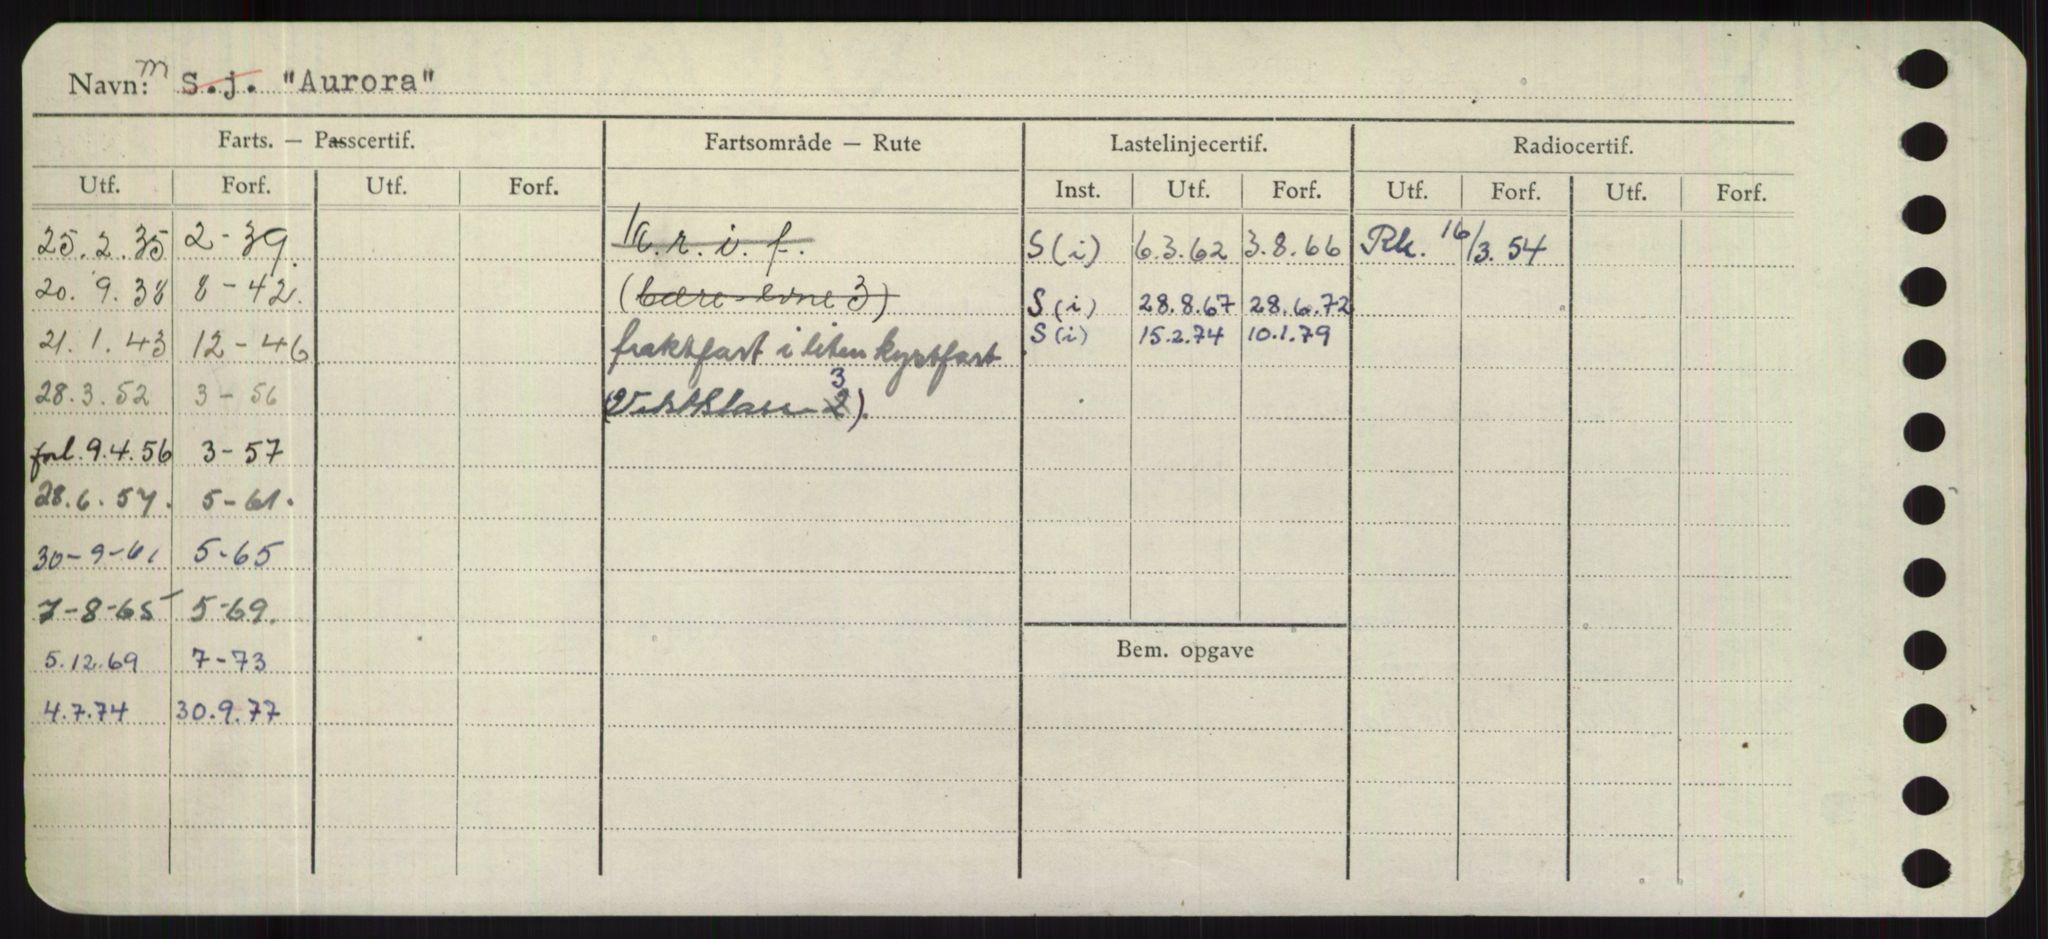 Navn: m S.j. "Aurora"
Farts. — Passcertif. Fartsområde — Rute Lastelinjecertif. Radiocertif.
Utf. Forf. Utf. Forf. Inst. Utf. Forf. Utf. Forf. Utf. Forf.
25.2.35 2-39 S(i) 6.3.62 3.8.66 Rk. 16/3.54
20.9.38 8-42. (bære-evne 3) S(i) 28.8.67 28.6.72
21.1.43 12-46 fraktfart i liten kystfart S(i) 15.2.74 10.1.79
3
28.3.52 3-56 (Vektklasse 2).
forl. 9.4.56 3-57
28.6.57. 5-61.
30-9-61 5-65
7-8-65 5-69.
Bem. opgave
5.12.69 7-73
4.7.74 30.9.77